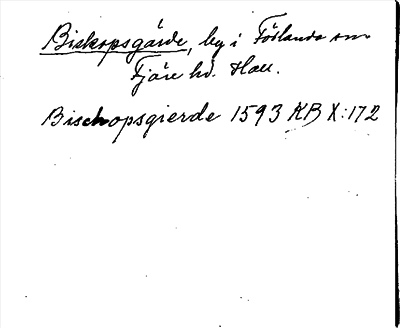 Biskopsgärde, by i Förlanda sn
Fjäre hd. Hall.
Bischopsgierde 1593 KB X:172